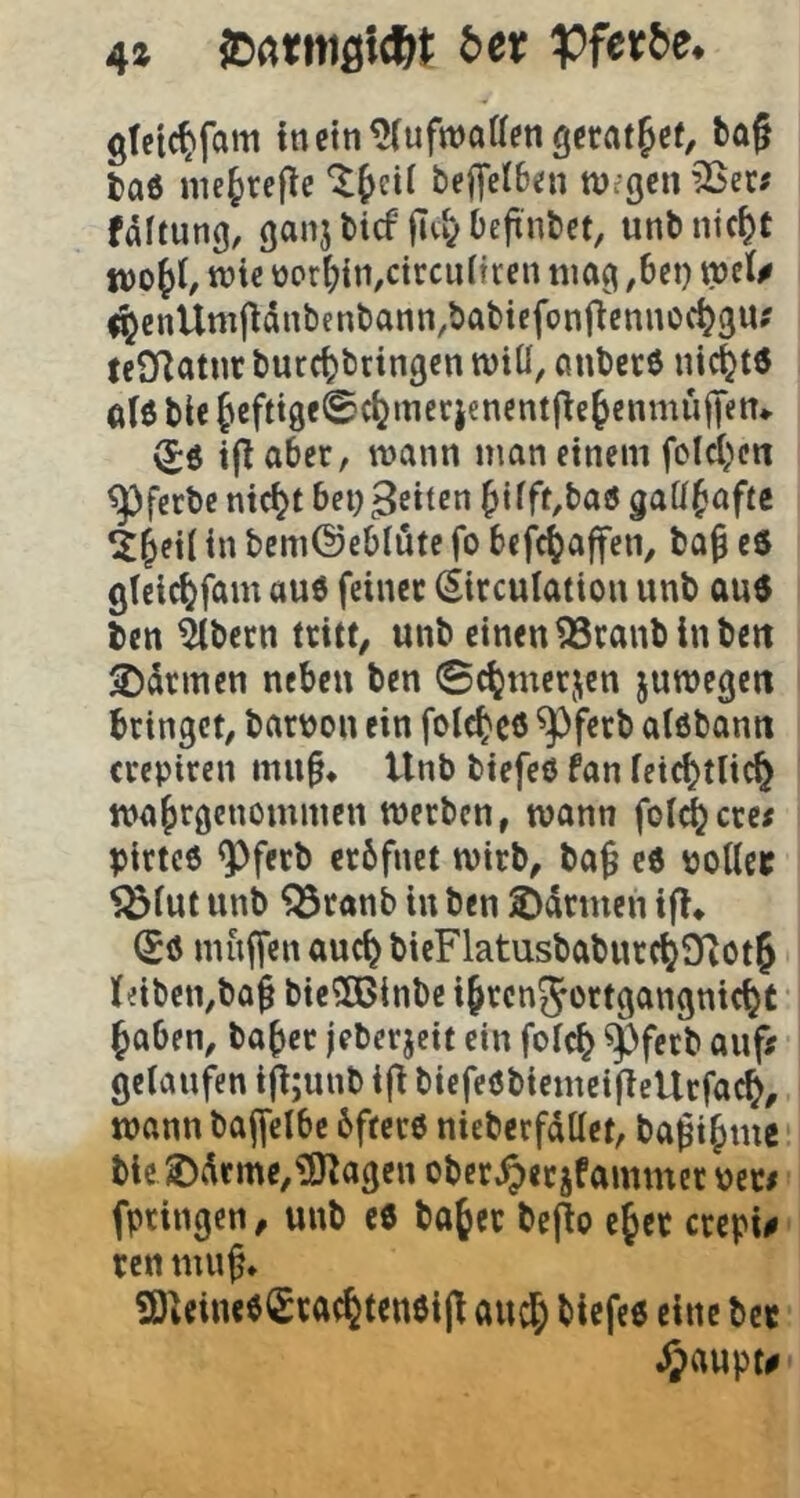 42 Darmgicht der Pferde.
gleichsam in ein Aufwallen gerathet, daß
das mehreste Theil desselben wegen Ver⸗
kältung, ganz dick sich befindet, und nicht
wohl, wie vorhin, circuliren mag, bey wel⸗
chen Umständen dann, da die sonsten noch gu⸗
te Natur durchdringen will, anders nichts
als die heftige Schmerzen entstehen müssen.
Es ist aber, wann man einem solchen
Pferde nicht bey Zeiten hilft, das gallhafte
Theil in dem Geblüte so beschaffen, daß es
gleichsam aus seiner Circulation und aus
den Adern tritt, und einen Brand in den
Därmen neben den Schmerzen zuwegen
bringet, darvon ein solches Pferd alsdann
crepiren muß. Und dieses kan leichtlich
wahrgenommen werden, wann solch cre⸗
pirtes Pferd eröfnet wird, daß es voller
Blut und Brand in den Därmen ist.
Es müssen auch die Flatus dadurch Noth
leiden, daß die Winde ihren Fortgang nicht
haben, daher jederzeit ein solch Pferd auf⸗
gelaufen ist; und ist dieses die meiste Ursach,
wann dasselbe öfters niederfället, daß ihme
die Därme, Magen oder Herzkammer ver⸗
springen, und es daher desto eher crepi⸗
ren muß.
Meines Erachtens ist auch dieses eine der
Haupt⸗